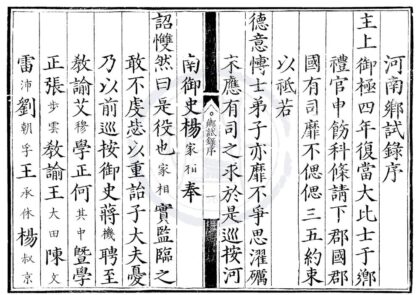 河南鄉試錄序
主上御極四年復當大比士于鄉
禮官申飭科條請下郡國郡
國有司靡不偲偲三五約束
以祗若
德意博士弟子亦靡不爭思濯礪
來應有司之求於是巡按河
鄉試錄序
一
南御史楊家相奉
詔愯然曰是役也家相實監臨之
敢不虔恷以重詒子大夫憂
乃以前巡按御史蔣機聘至
敎諭艾穆學正何其中曁學
正張步雲敎諭王大田陳文
雷沛劉朝孚王承休楊叔京